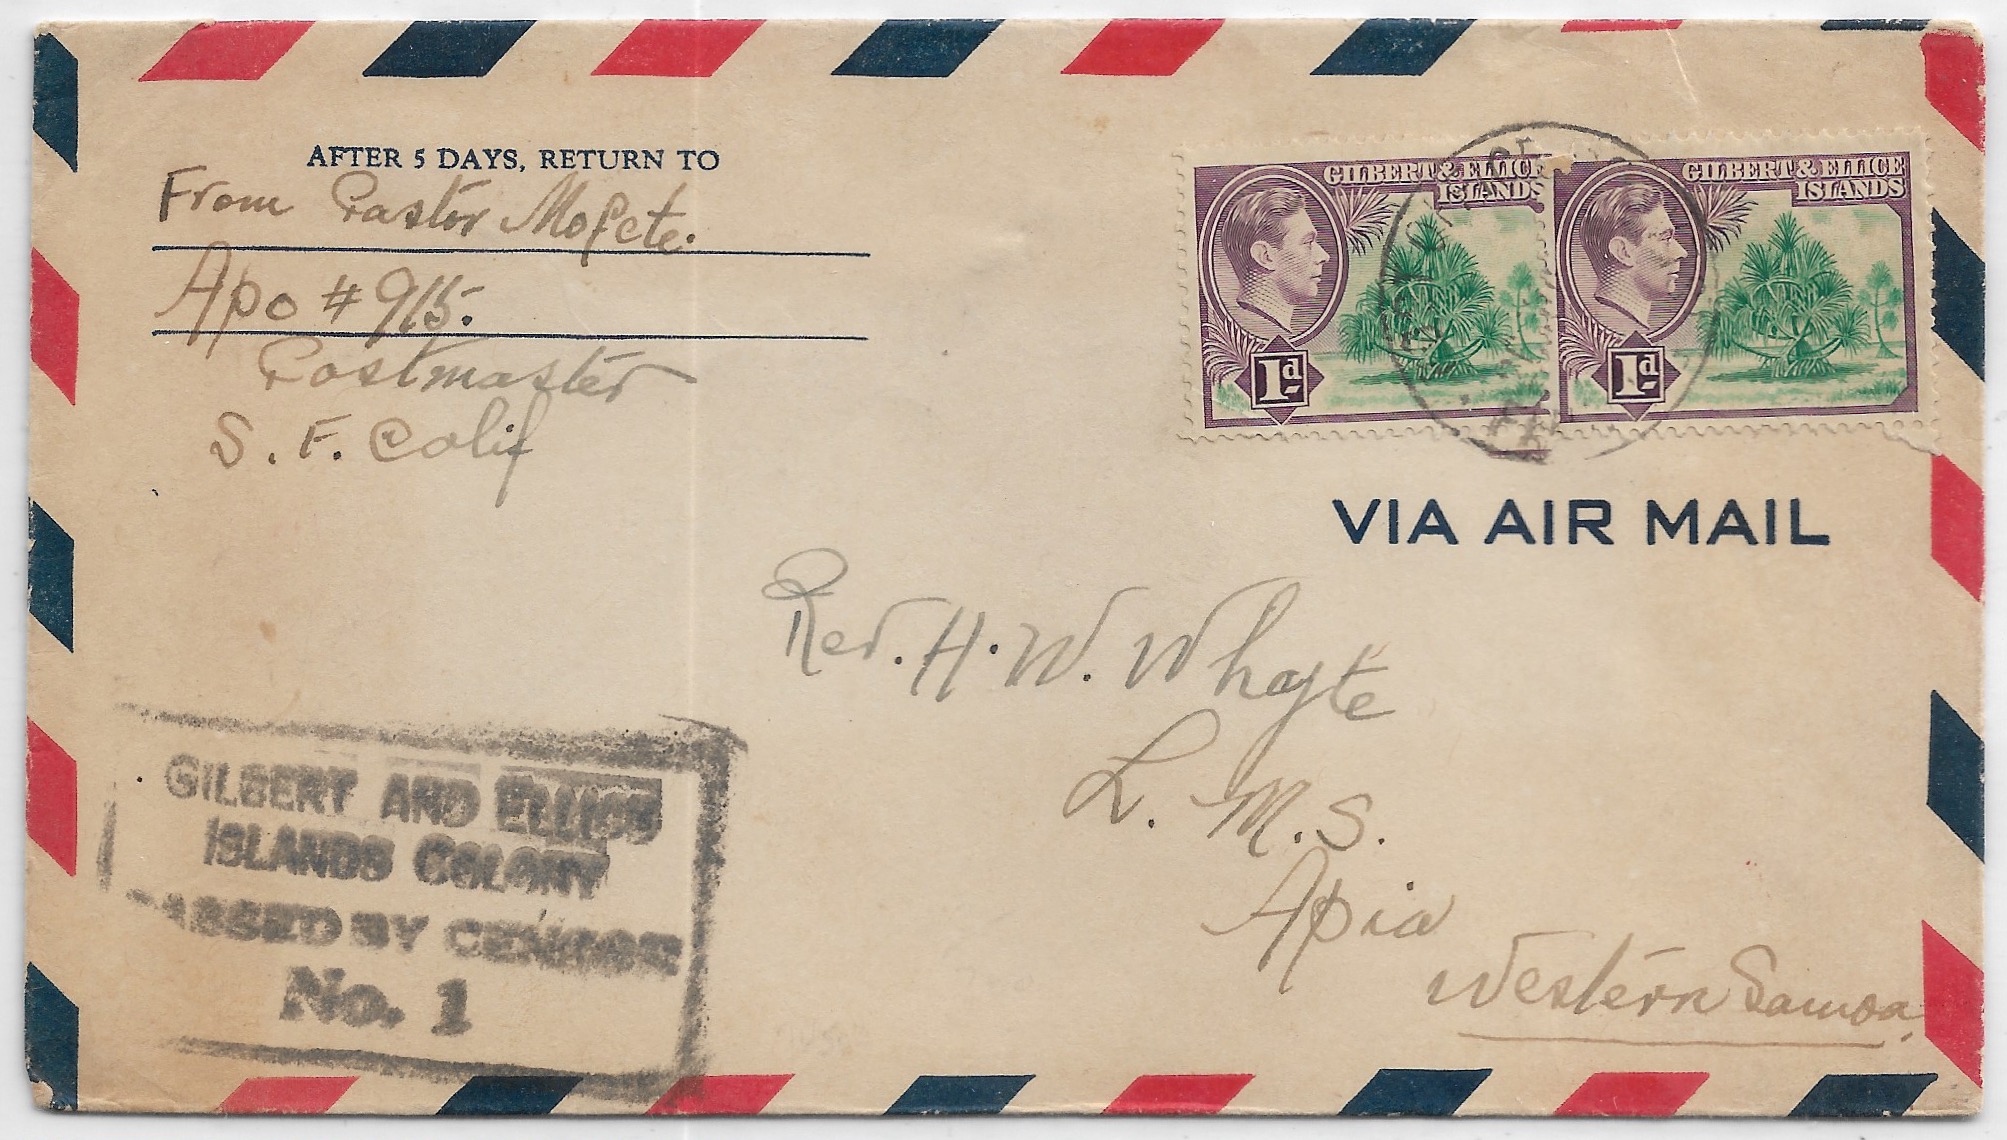 AFTER 5 DAYS, RETURN TO
From Pastor Mofete.
Apo # 915.
Postmaster
S. F. Calif
GILBERT & ELLICE
ISLANDS
1d
GILBERT & ELLICE
ISLANDS
1d
VIA AIR MAIL
Rev. H. W. Whyte
L. M. S.
Apia
Western Samoa.
GILBERT AND ELLICE
ISLANDS COLONY
PASSED BY CENSOR
No. 1